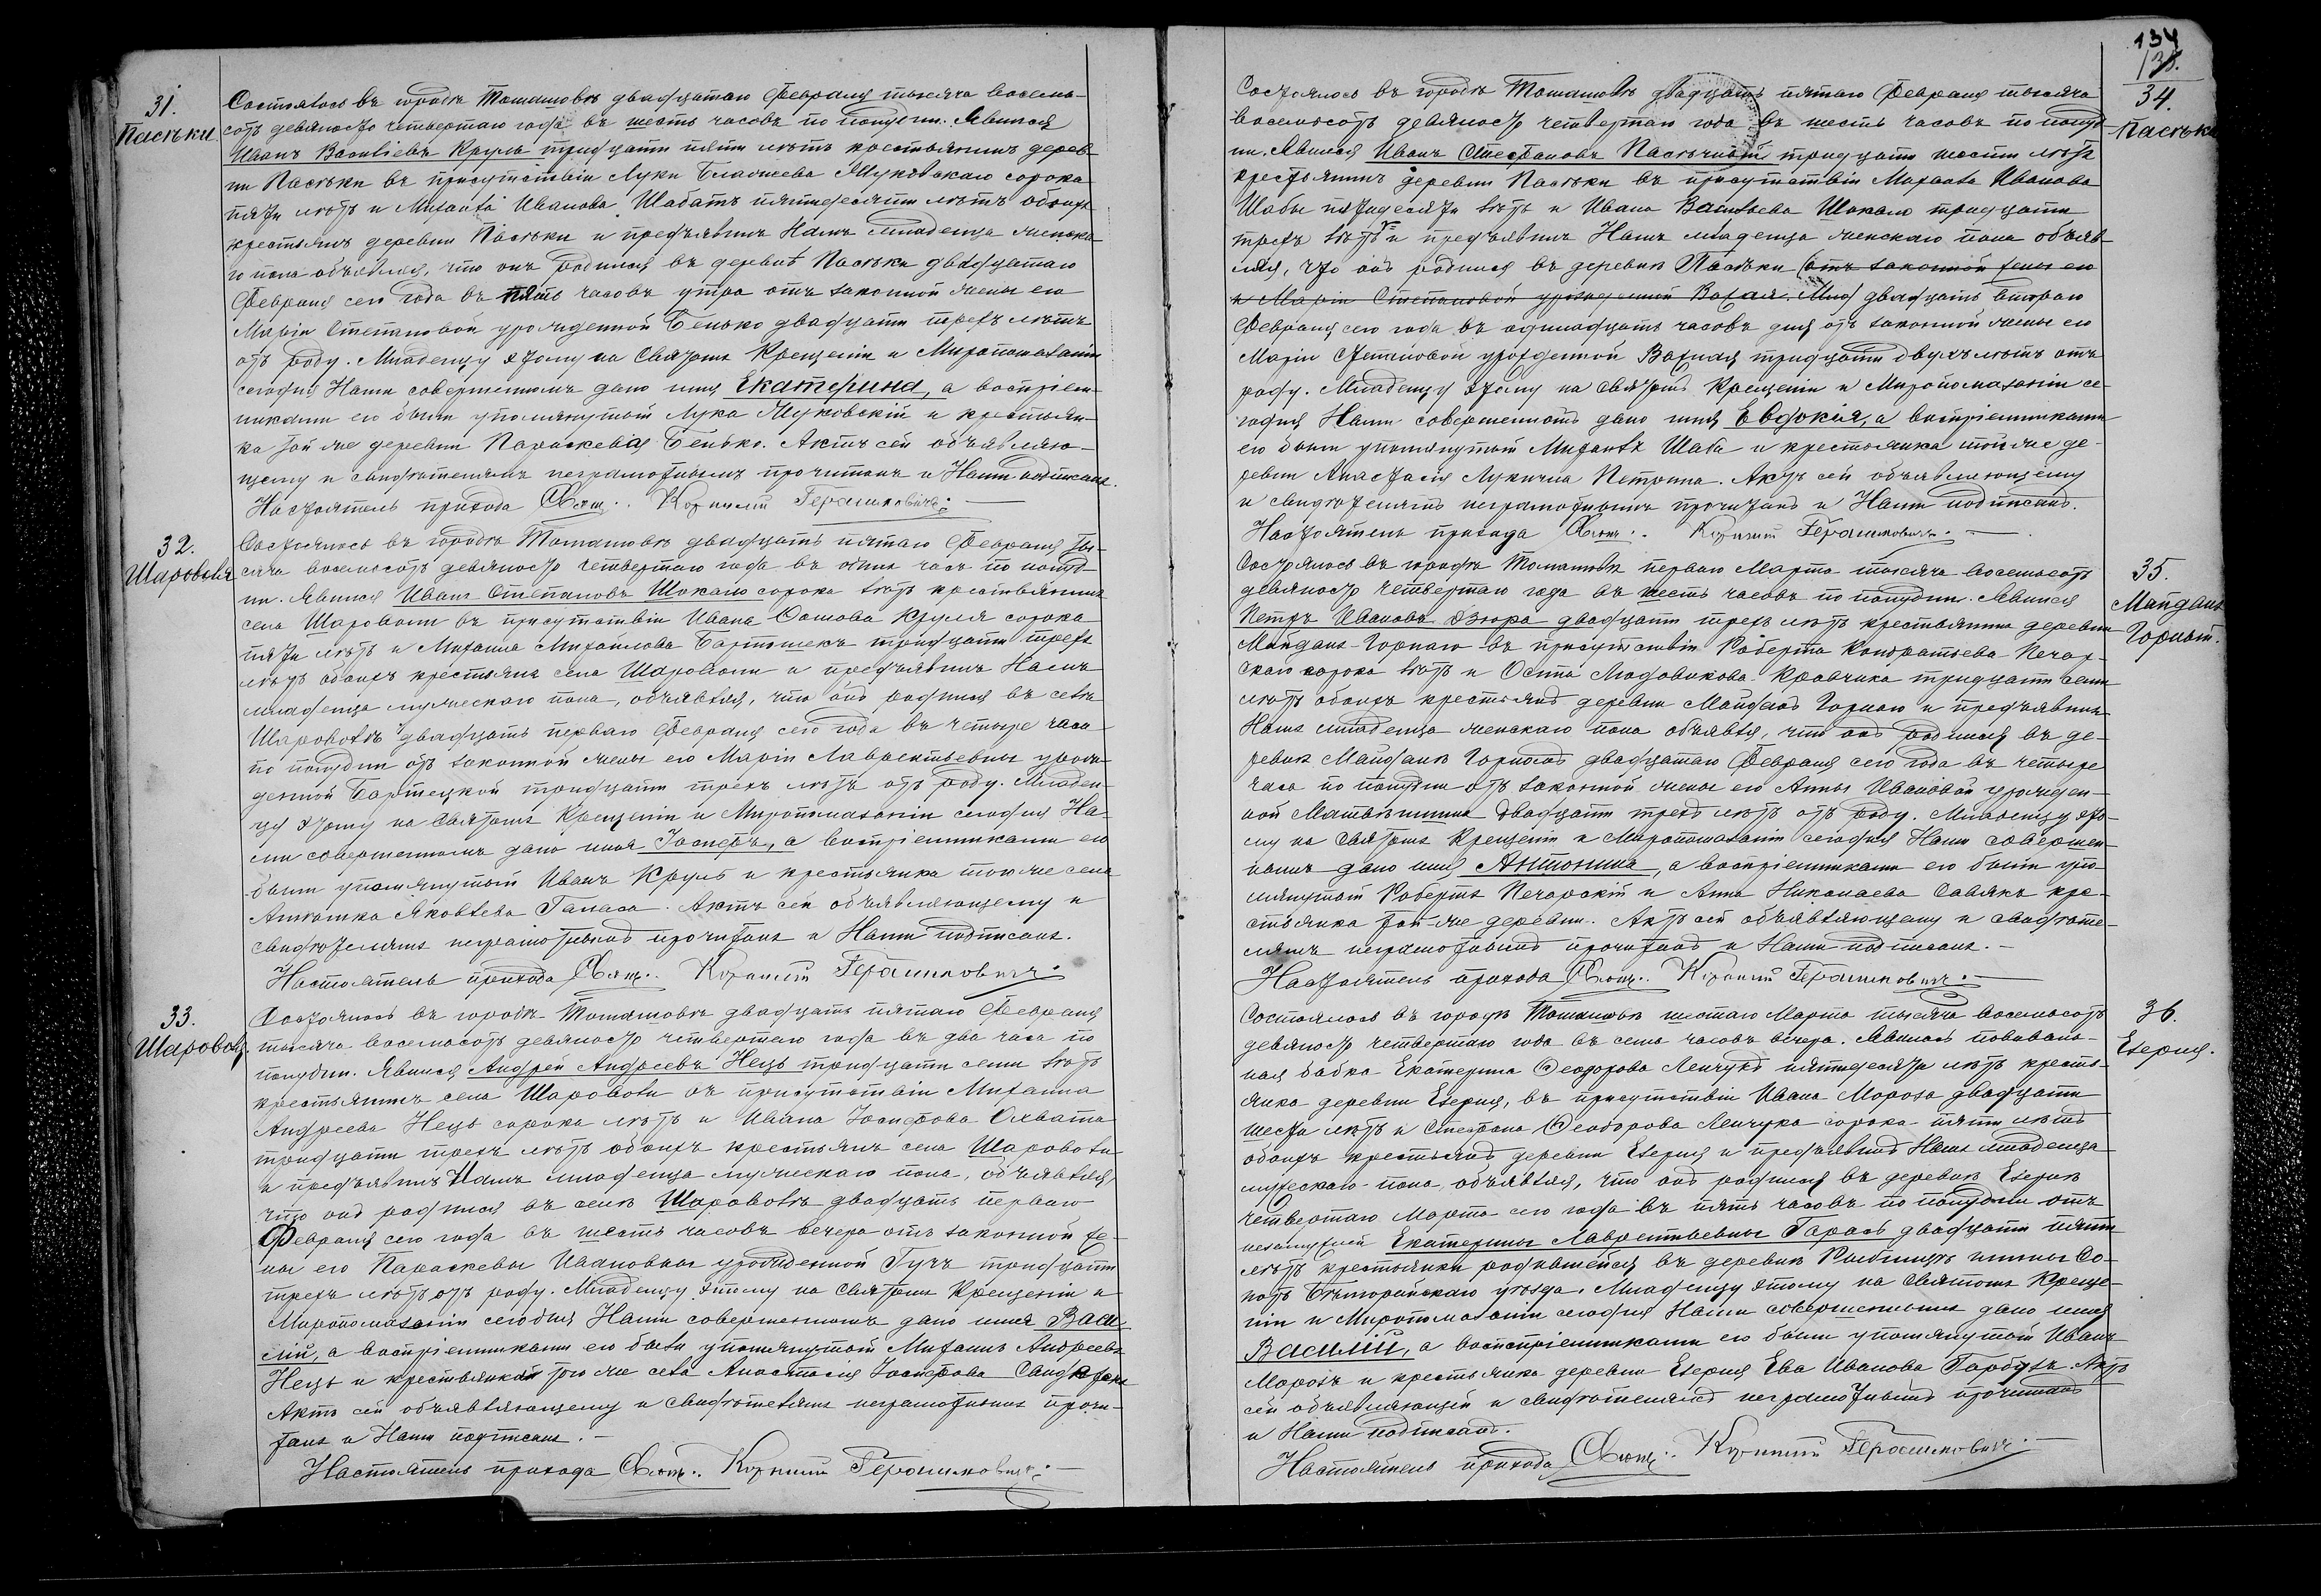 31.
Пасѣки
Состоялось въ городѣ Томашовѣ двадцатаго Февраля тысяча восемь-
сотъ девяносто четвертаго года въ шесть часовъ по полудни. Явился
Иванъ Васильевъ Круль тридцати пяти лѣтъ крестьянинъ дерев-
ни Пасѣки въ присутствіи Луки сорока
пяти лѣтъ и Михаила Иванова Шабатъ пятидесяти лѣтъ обоихъ
крестьянъ деревни Пасѣки и предъявилъ Намъ младенца женска-
го пола объявляя, что онъ родился въ деревнѣ Пасѣки двадцатаго
Февраля сего года въ пять часовъ утра отъ законной жены его
Маріи Степановой урожденной Бенько двадцати трехъ лѣтъ
отъ роду. Младенцу этому на Святомъ Крещеніи и Миропомазаніи
сегодня Нами совершенномъ дано имя Екатерина, а воспріем-
никами его были упомянутый Лука Жуковскій и крестьян-
ка той же деревни Параскевая Бенько. Актъ сей объявляю-
щему и свидѣтелямъ неграмотнымъ прочитанъ и Нами подписанъ.
Настоятель прихода Свящ. Корнилій Герашковичъ.
32.
Шароволя
Состоялось въ городѣ Томашовѣ двадцать пятаго Февраля ты-
сяча восемьсотъ девяносто четвертаго года въ часъ по полуд-
ни. Явился Иванъ Степановъ Шокало сорока лѣтъ крестьянинъ
села Шароволи въ присутствіи Ивана Круля сорока
пяти лѣтъ и Михаила Михайлова Бартошекъ тридцати трехъ
лѣтъ обоихъ крестьянъ села Шароволи и предъявилъ Намъ
младенца мужескаго пола, объявляя, что онъ родился въ селѣ
Шароволѣ двадцать перваго Февраля сего года въ четыре часа
по полудни отъ законной жены его Маріи Лаврентьевны урож-
денной Бартецкой тридцати трехъ лѣтъ отъ роду. Младен-
цу этому на Святомъ Крещеніи и Миропомазаніи сегодня На-
ми совершенномъ дано имя Іосифъ, а воспріемниками его
были упомянутый Иванъ Круль и крестьянка того же села
Яковлева Галаса. Актъ сей объявляющему и
свидѣтелямъ неграмотнымъ прочитанъ и Нами подписанъ.
Настоятель прихода Свящ. Корнилій Герашковичъ.
33.
Шароволя
Состоялось въ городѣ Томашовѣ двадцать пятаго Февраля
тысяча восемьсотъ девяносто четвертаго года въ два часа по
полудни. Явился Андрей Андреевъ Нецъ тридцати семи лѣтъ
крестьянинъ села Шароволи въ присутствіи Михаила
Андреева Нецъ сорока лѣтъ и Ивана Іосифова Охвата
тридцати трехъ лѣтъ обоихъ крестьянъ села Шароволи
и предъявилъ Намъ младенца мужескаго пола, объявляя,
что онъ родился въ селѣ Шароволѣ двадцать перваго
Февраля сего года въ шесть часовъ вечера отъ законной же-
ны его Параскевы Ивановны урожденной Гучъ тридцати
трехъ лѣтъ отъ роду. Младенцу этому на Святомъ Крещеніи и
Миропомазаніи сегодня Нами совершенномъ дано имя Васи-
лій, а воспріемниками его были упомянутый Михаилъ Андреевъ
Нецъ и крестьянка того же села Анастасія Іосифова
Актъ сей объявляющему и свидѣтелямъ неграмотнымъ прочи-
танъ и Нами подписанъ.
Настоятель прихода Свящ. Корнилій Герашковичъ.
134
135.
34.
Пасѣки
Состоялось въ городѣ Томашовѣ двадцать пятаго Февраля тысяча
восемьсотъ девяносто четвертаго года въ шесть часовъ по полуд-
ни. Явился Иванъ Стефановъ Пасѣчный тридцати шести лѣтъ
крестьянинъ деревни Пасѣки въ присутствіи Михаила Иванова
Шабы пятидесяти лѣтъ и Ивана Васильева Шокало тридцати
трехъ лѣтъ и предъявилъ Намъ младенца женскаго пола объяв-
ляя, что онъ родился въ деревнѣ Пасѣки отъ законной жены его
Маріи Степановой урожденной двадцать втораго
Февраля сего года въ одинадцать часовъ дня отъ законной жены его
Маріи урожденной Вахная тридцати двухъ лѣтъ отъ
роду. Младенцу этому на Святомъ Крещеніи и Миропомазаніи се-
годня Нами совершенномъ дано имя Евдокія, а воспріемниками
его были упомянутый Михаилъ Шаба и крестьянка той же де-
ревни Анастасія Лукична Петрина. Актъ сей объявляющему
и свидѣтелямъ неграмотнымъ прочитанъ и Нами подписанъ.
Настоятель прихода Свящ. Корнилій Герашковичъ.
35.
Майданъ
Горный.
Состоялось въ городѣ Томашовѣ перваго Марта тысяча восемьсотъ
девяносто четвертаго года въ шесть часовъ по полудни. Явился
Петръ Ивановъ Дзюра двадцати трехъ лѣтъ крестьянинъ деревни
Майданъ-Горнаго въ присутствіи Роберта Кондратьева Печар-
скаго сорока лѣтъ и Осипа Людовикова Кравчика тридцати семи
лѣтъ обоихъ крестьянъ деревни Майданъ Горнаго и предъявилъ
Намъ младенца женскаго пола объявляя, что онъ родился въ де-
ревнѣ Майданѣ Горномъ двадцатаго Февраля сего года въ четыре
часа по полудни отъ законной жены его Анны Ивановой урожден-
ной двадцати трехъ лѣтъ отъ роду. Младенцу это-
му на Святомъ Крещеніи и Миропомазаніи сегодня Нами совершен-
номъ дано имя Антонина, а воспріемниками его были упо-
мянутый Робертъ Печарскій и Анна Николаева Савякъ кре-
стьянка той же деревни. Актъ сей объявляющему и свидѣте-
лямъ неграмотнымъ прочитанъ и Нами подписанъ.
Настоятель прихода Свящ. Корнилій Герашковичъ.
36.
Езерня.
Состоялось въ городѣ Томашовѣ шестаго Марта тысяча восемьсотъ
девяносто четвертаго года въ семь часовъ вечера. Явилась повиваль-
ная бабка Екатерина Феодорова Ленчукъ пятидесяти лѣтъ кресть-
янка деревни Езерня, въ присутствіи Ивана Мороза двадцати
шести лѣтъ и Стефана Феодорова Ленчука сорока пяти лѣтъ
обоихъ крестьянъ деревни Езерня и предъявила Намъ младенца
мужескаго пола, объявляя, что онъ родился въ деревнѣ Езернѣ
четвертаго Марта сего года въ пять часовъ по полудни отъ
незамужней Екатерины Лаврентьевны Гарась двадцати пяти
лѣтъ крестьянки родившейся въ деревнѣ гмины Со-
поть Бѣлгорайскаго уѣзда. Младенцу этому на Святомъ Креще-
ніи и Миропомазаніи сегодня Нами совершенномъ дано имя
Василій, а воспріемниками его были упомянутый Иванъ
Морозъ и крестьянка деревни Езерня Ева Иванова Гарбузъ. Актъ
сей объявляющей и свидѣтелямъ неграмотнымъ прочитанъ
и Нами подписанъ.
Настоятель прихода Свящ. Корнилій Герашковичъ.